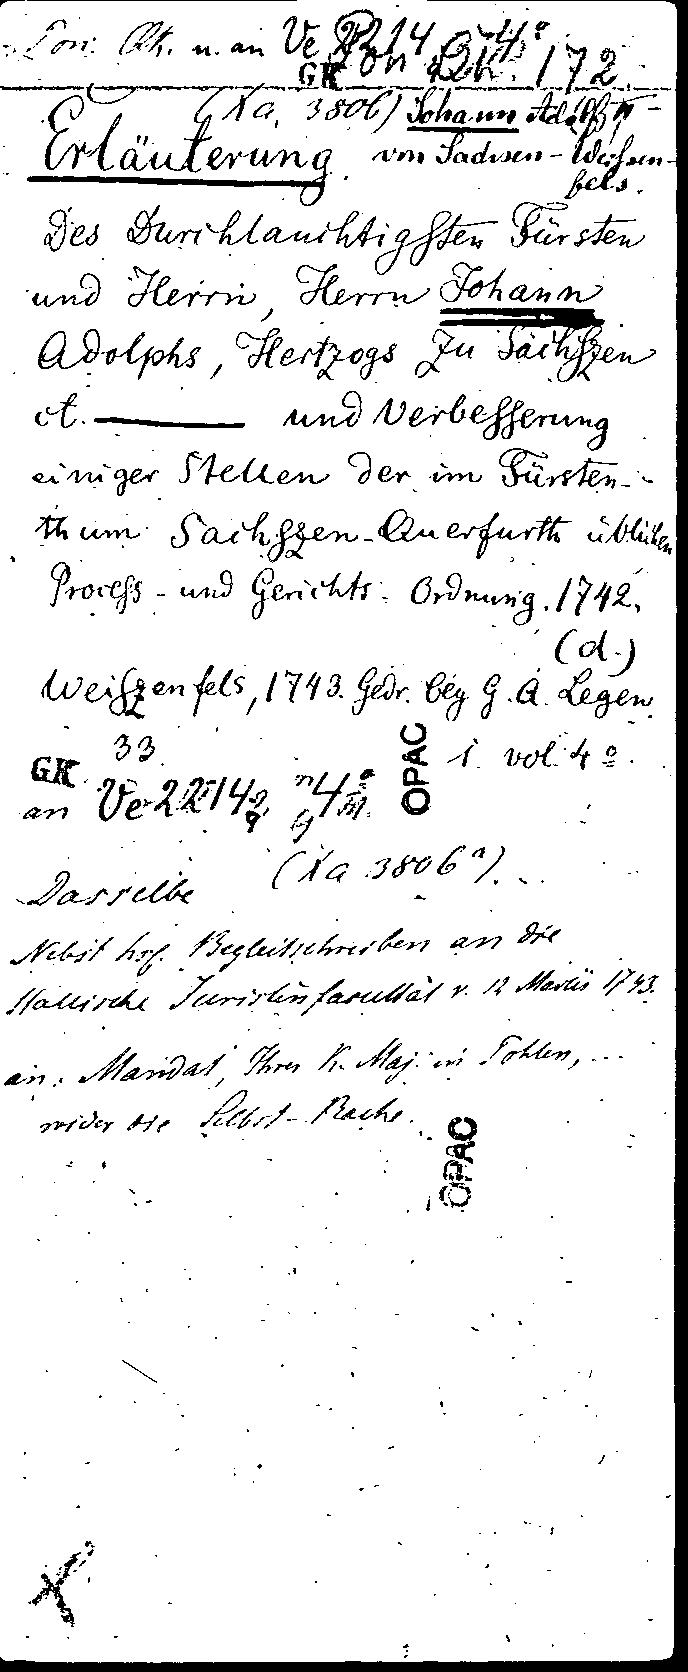 Pon. Qk. u. an Ve 2214 4°
GK Pon Qk. 172
(Xa, 3806) Johann Adolf II
Erläuterung. von Sachsen-Weissen-
fels.
Des Durchlauchtigsten Fürsten
und Herrn, Herrn Johann
Adolphs, Hertzogs zu Sachszen
ct. ——— und Verbesserung
einiger Stellen der im Fürsten-
thum Sachszen-Querfurth üblichen
Process- und Gerichts-Ordnung. 1742.
(d.)
Weiszenfels, 1743. Gedr. bey G. A. Legen
33. 1. vol. 4°.
GK
an Ve 2214 4°
OPAC
(Xa 3806 a).
Dasselbe
Nebst hsf. Begleitschreiben an die
Hallische Juristenfacultät v. 12 Martii 1743.
an: Mandat, Ihrer K. Maj. in Pohlen, ...
wider die Selbst-Rache.
OPAC